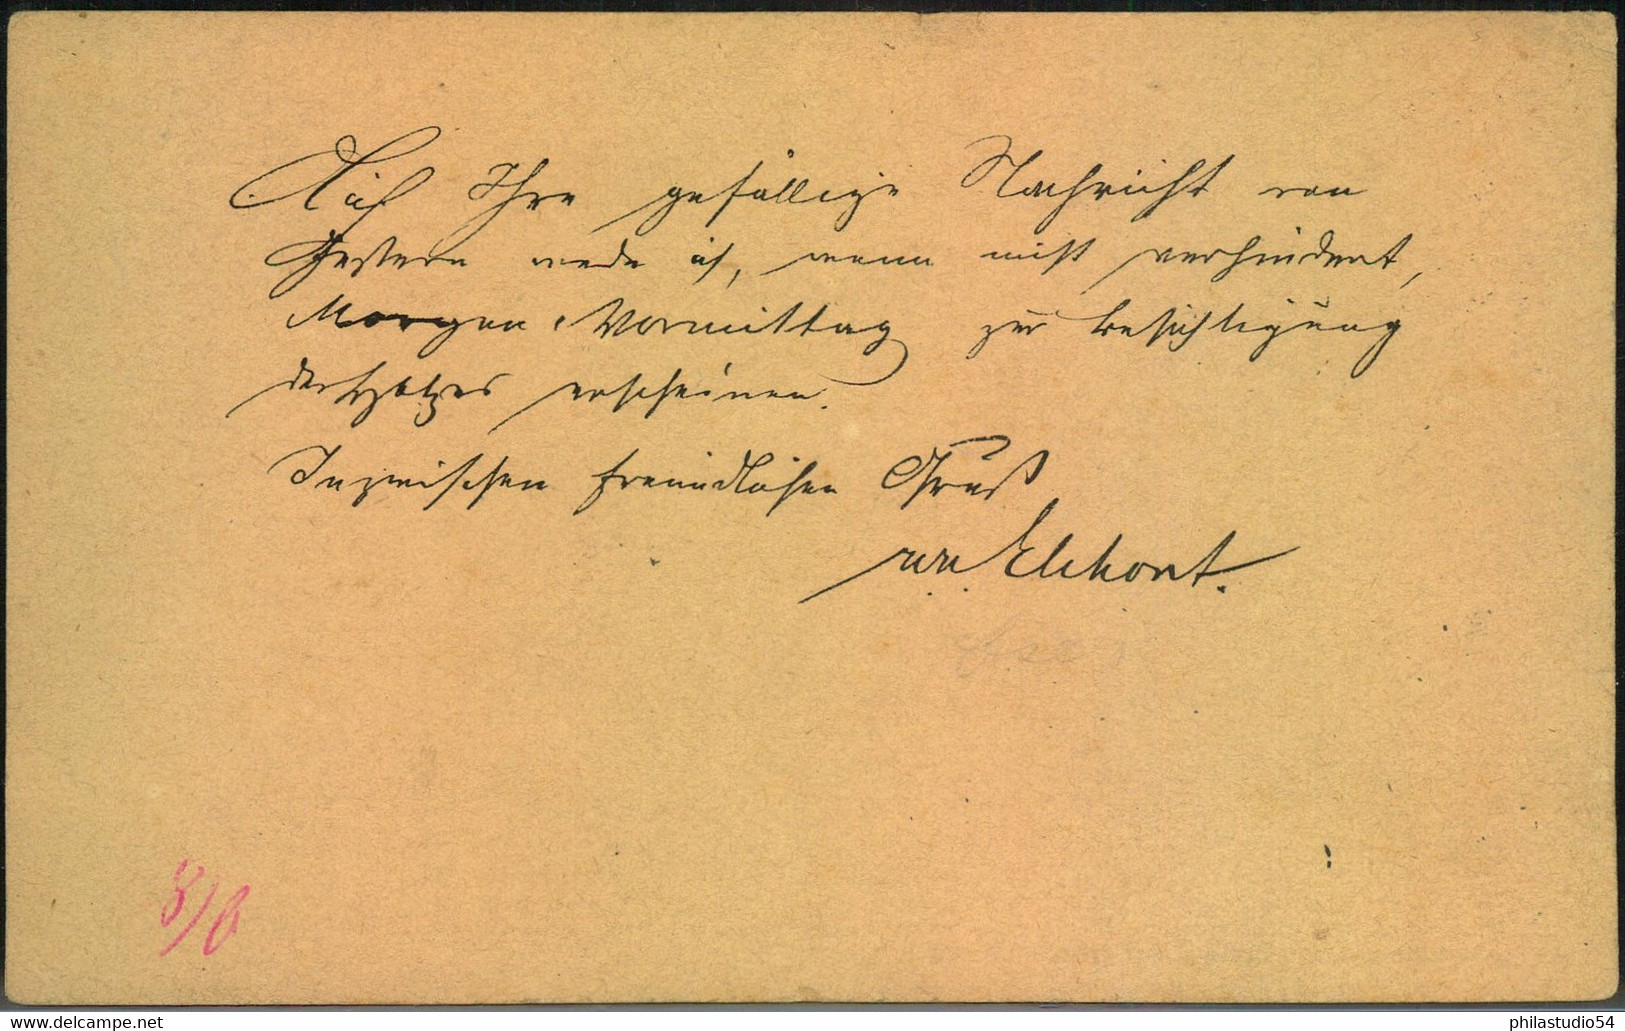 Auf Ihre gefällige Nachricht von
Gestern werde ich, wenn nicht verhindert,
Morgen Vormittag zur Besichtigung
des Holzes erscheinen.
Inzwischen freundlichen Gruß
von Elckort.
8/6
delcampe.net
philastudio54